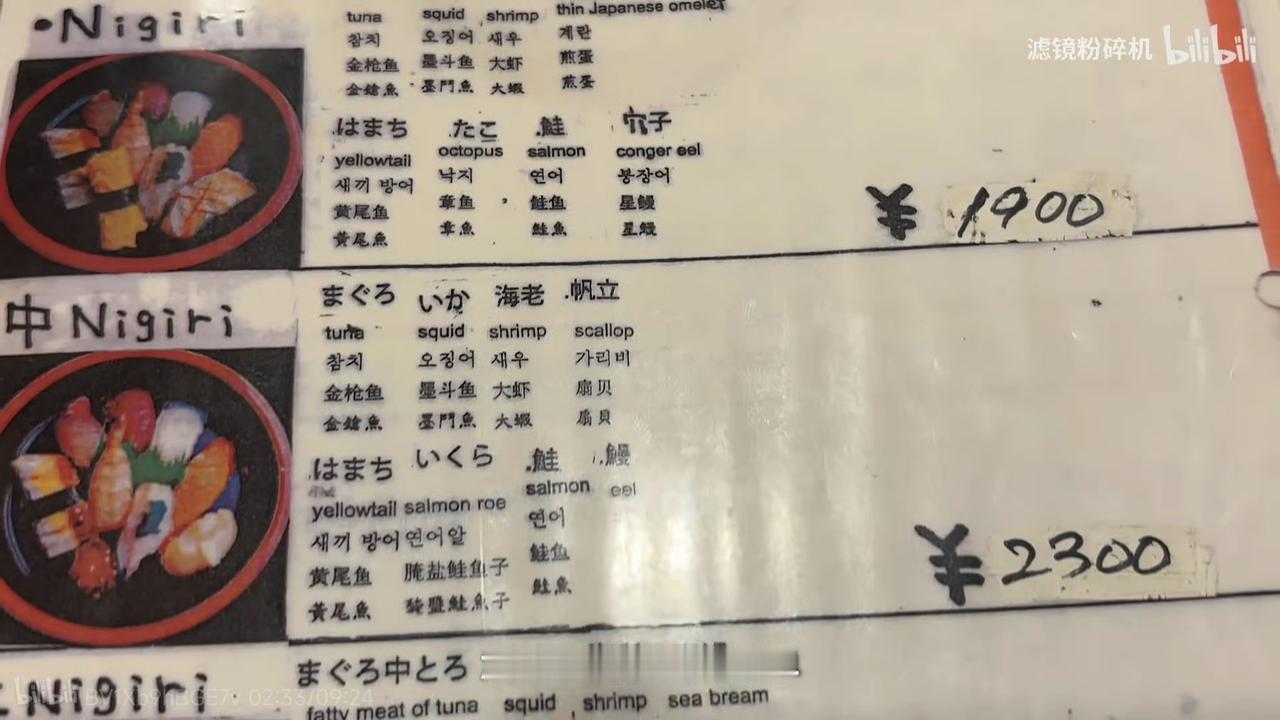 •Nigiri
tuna squid shrimp thin Japanese omelet
참치 오징어 새우 계란
金枪鱼 墨斗鱼 大虾 煎蛋
金鎗魚 墨鬥魚 大蝦 煎蛋
はまち たこ 鮭 穴子
yellowtail octopus salmon conger eel
새끼 방어 낙지 연어 붕장어
黄尾鱼 章鱼 鲑鱼 星鳗
黃尾魚 章魚 鮭魚 星鰻
¥ 1900
中 Nigiri
まぐろ いか 海老 帆立
tuna squid shrimp scallop
참치 오징어 새우 가리비
金枪鱼 墨斗鱼 大虾 扇贝
金鎗魚 墨鬥魚 大蝦 扇貝
はまち いくら 鮭 鰻
yellowtail salmon roe salmon eel
새끼 방어 연어알 연어
黄尾鱼 腌盐鲑鱼子 鲑鱼
黃尾魚 醃鹽鮭魚子 鮭魚
¥ 2300
Nigiri
まぐろ中とろ
fatty meat of tuna squid shrimp sea bream
滤镜粉碎机 bilibili
bilibili 02:33/09:24